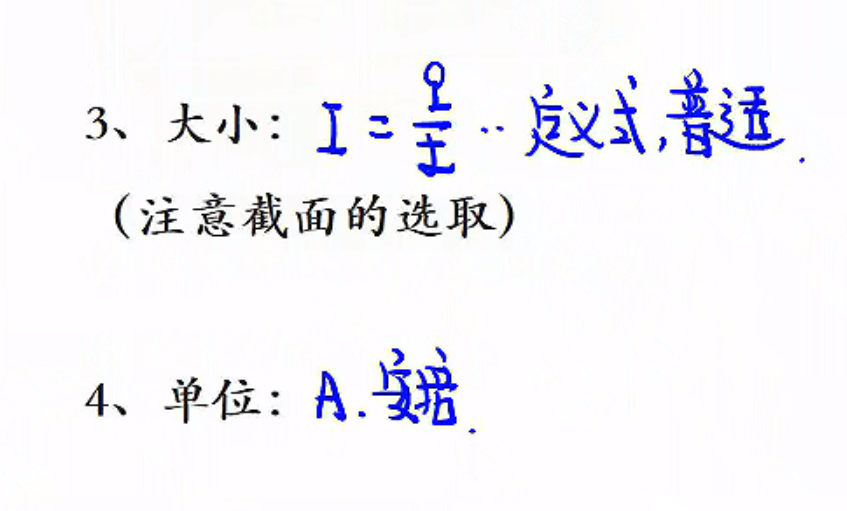 3、大小：I = q/t ·· 定义式,普适.
(注意截面的选取)
4、单位：A.安培.